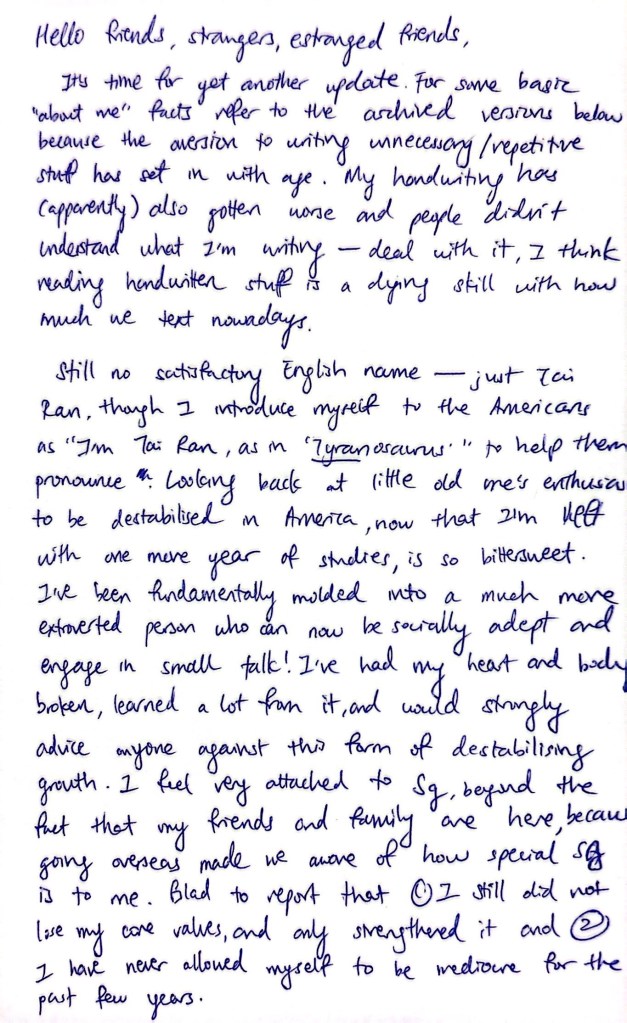 Hello friends, strangers, estranged friends,
It's time for yet another update. For some basic
"about me" facts refer to the archived versions below
because the aversion to writing unnecessary/repetitive
stuff has set in with age. My handwriting has
(apparently) also gotten worse and people didn't
understand what I'm writing — deal with it, I think
reading handwritten stuff is a dying skill with how
much we text nowadays.
Still no satisfactory English name — just Tai
Ran, though I introduce myself to the Americans
as "I'm Tai Ran, as in 'Tyranosaurus'" to help them
pronounce it. Looking back at little old me's enthusias
to be destabilised in America, now that I'm left
with one more year of studies, is so bittersweet.
I've been fundamentally molded into a much more
extroverted person who can now be socially adept and
engage in small talk! I've had my heart and body
broken, learned a lot from it, and would strongly
advice anyone against this form of destabilising
growth. I feel very attached to Sg, beyond the
fact that my friends and family are here, becaus
going overseas made me aware of how special Sg
is to me. Glad to report that ① I still did not
lose my core values, and only strengthered it and ②
I have never allowed myself to be mediocre for the
past few years.